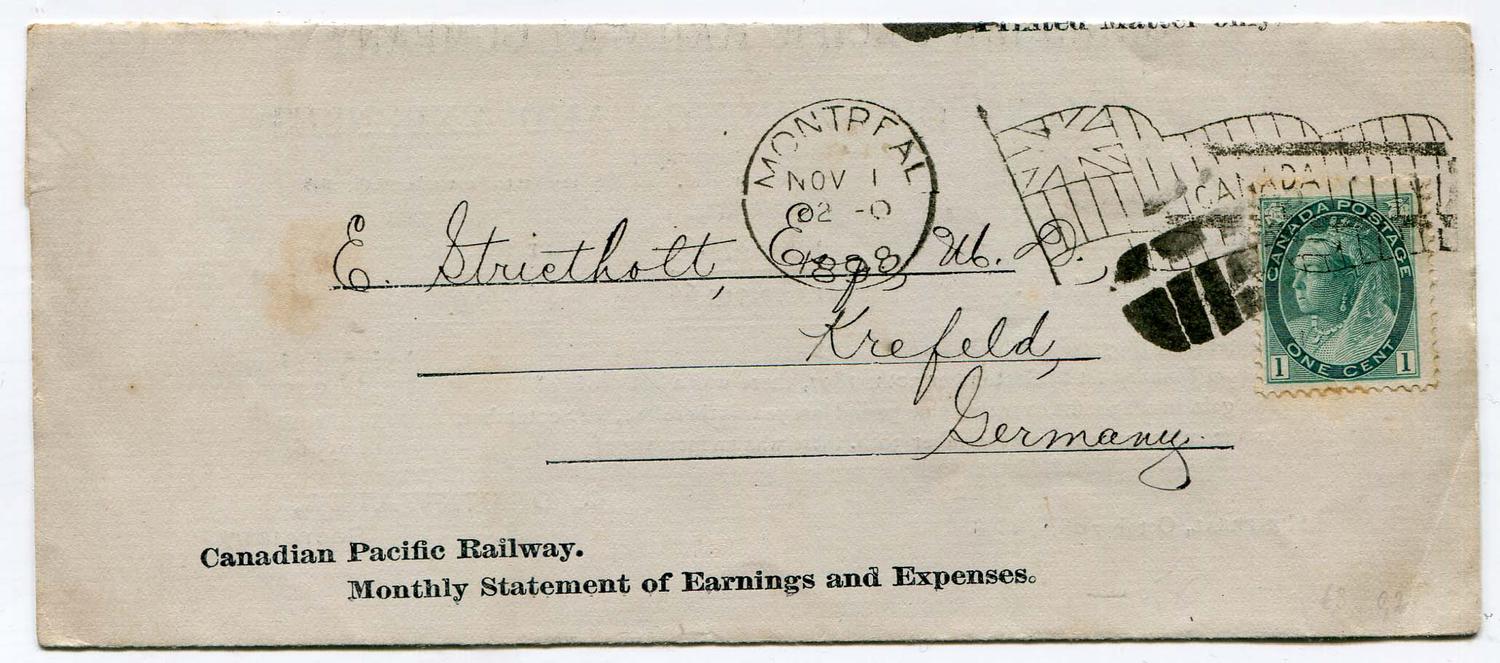 Printed Matter only
MONTREAL
NOV 1
02 - 0
1898
CANADA
CANADA POSTAGE
ONE CENT
1 1
E. Strictholt, Esq., M. D.
Krefeld,
Germany.
Canadian Pacific Railway.
Monthly Statement of Earnings and Expenses.